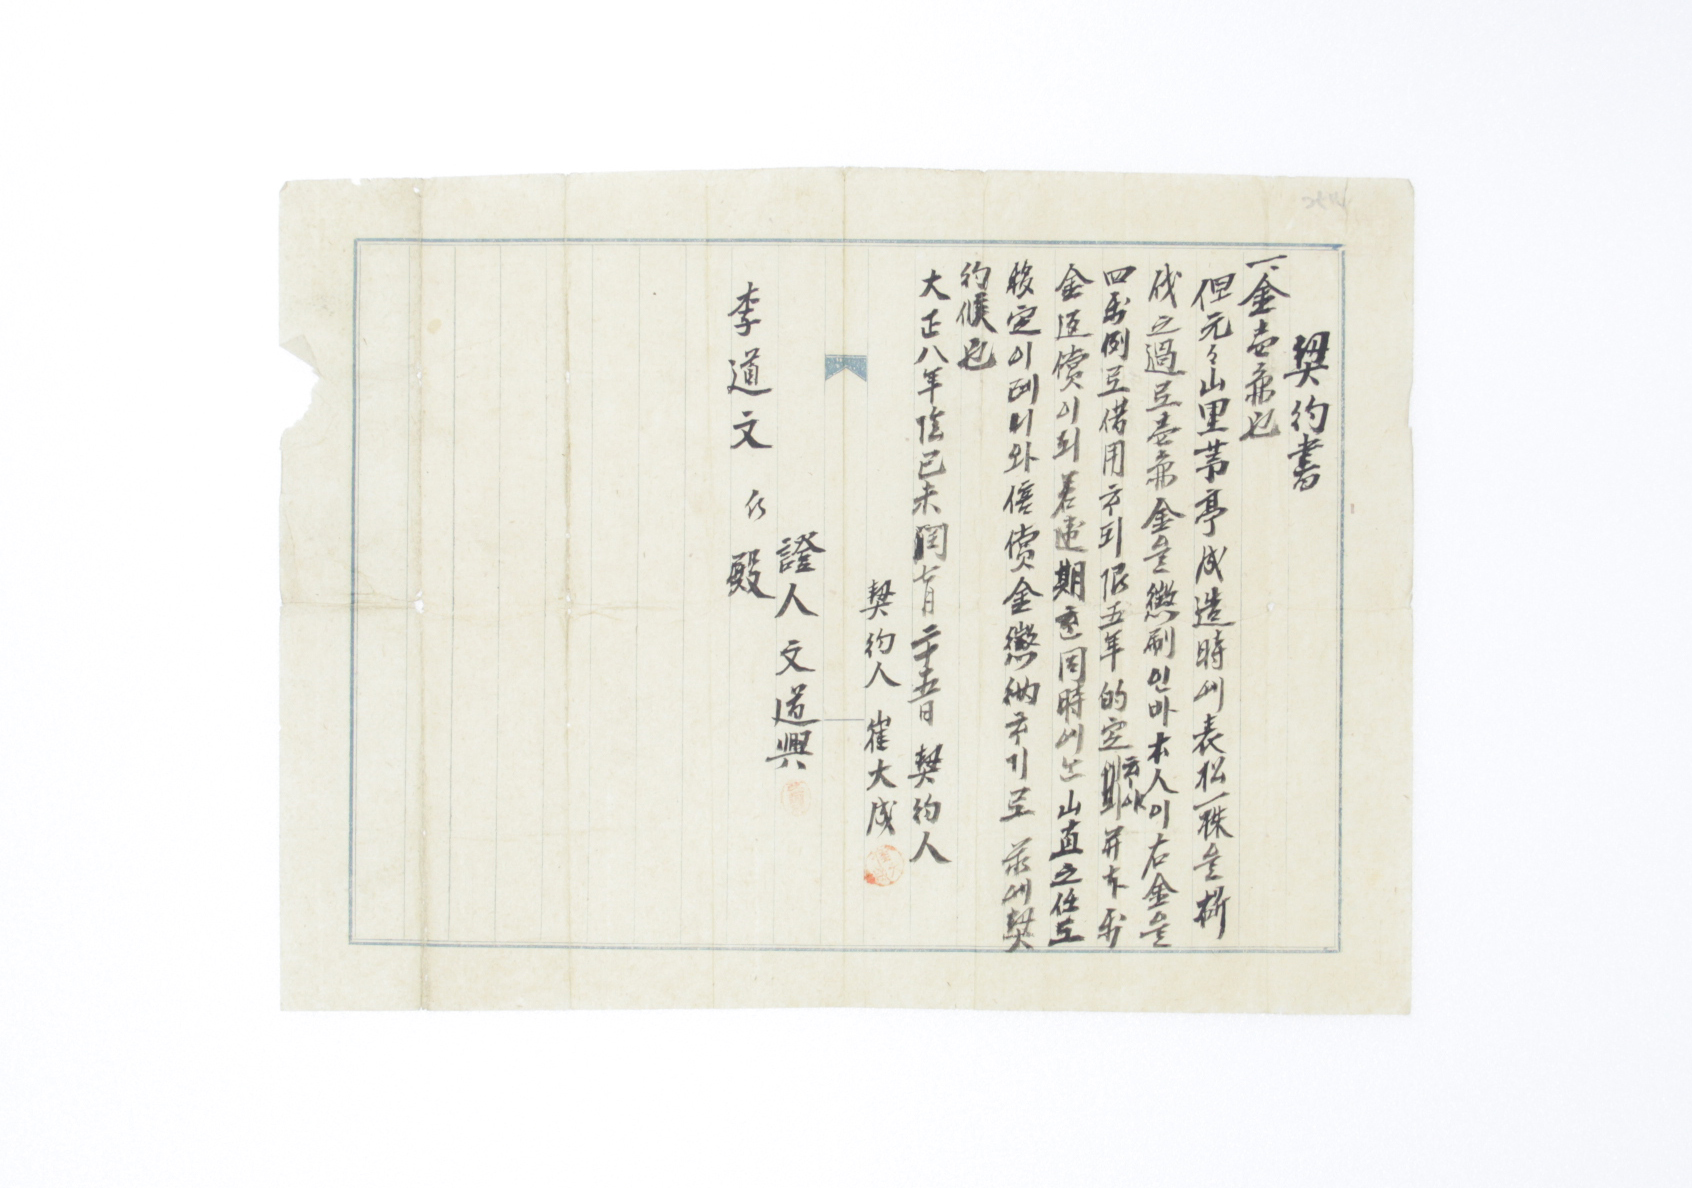 契約書
一金壹兩也
但元々山里茅亭成造時에表松一株을斫
伐之過로壹兩金을懲刷인바本人이右金을
四利例로借用하되限五年的定하야并本利
金返償이되若違期면同時에는山直之任도
移定이려니와倍償金懲納하기로 玆에契
約候也
大正八年陰己未閏七月二十五日 契約人
契約人 崔大成
證人 文道興
李道文 殿